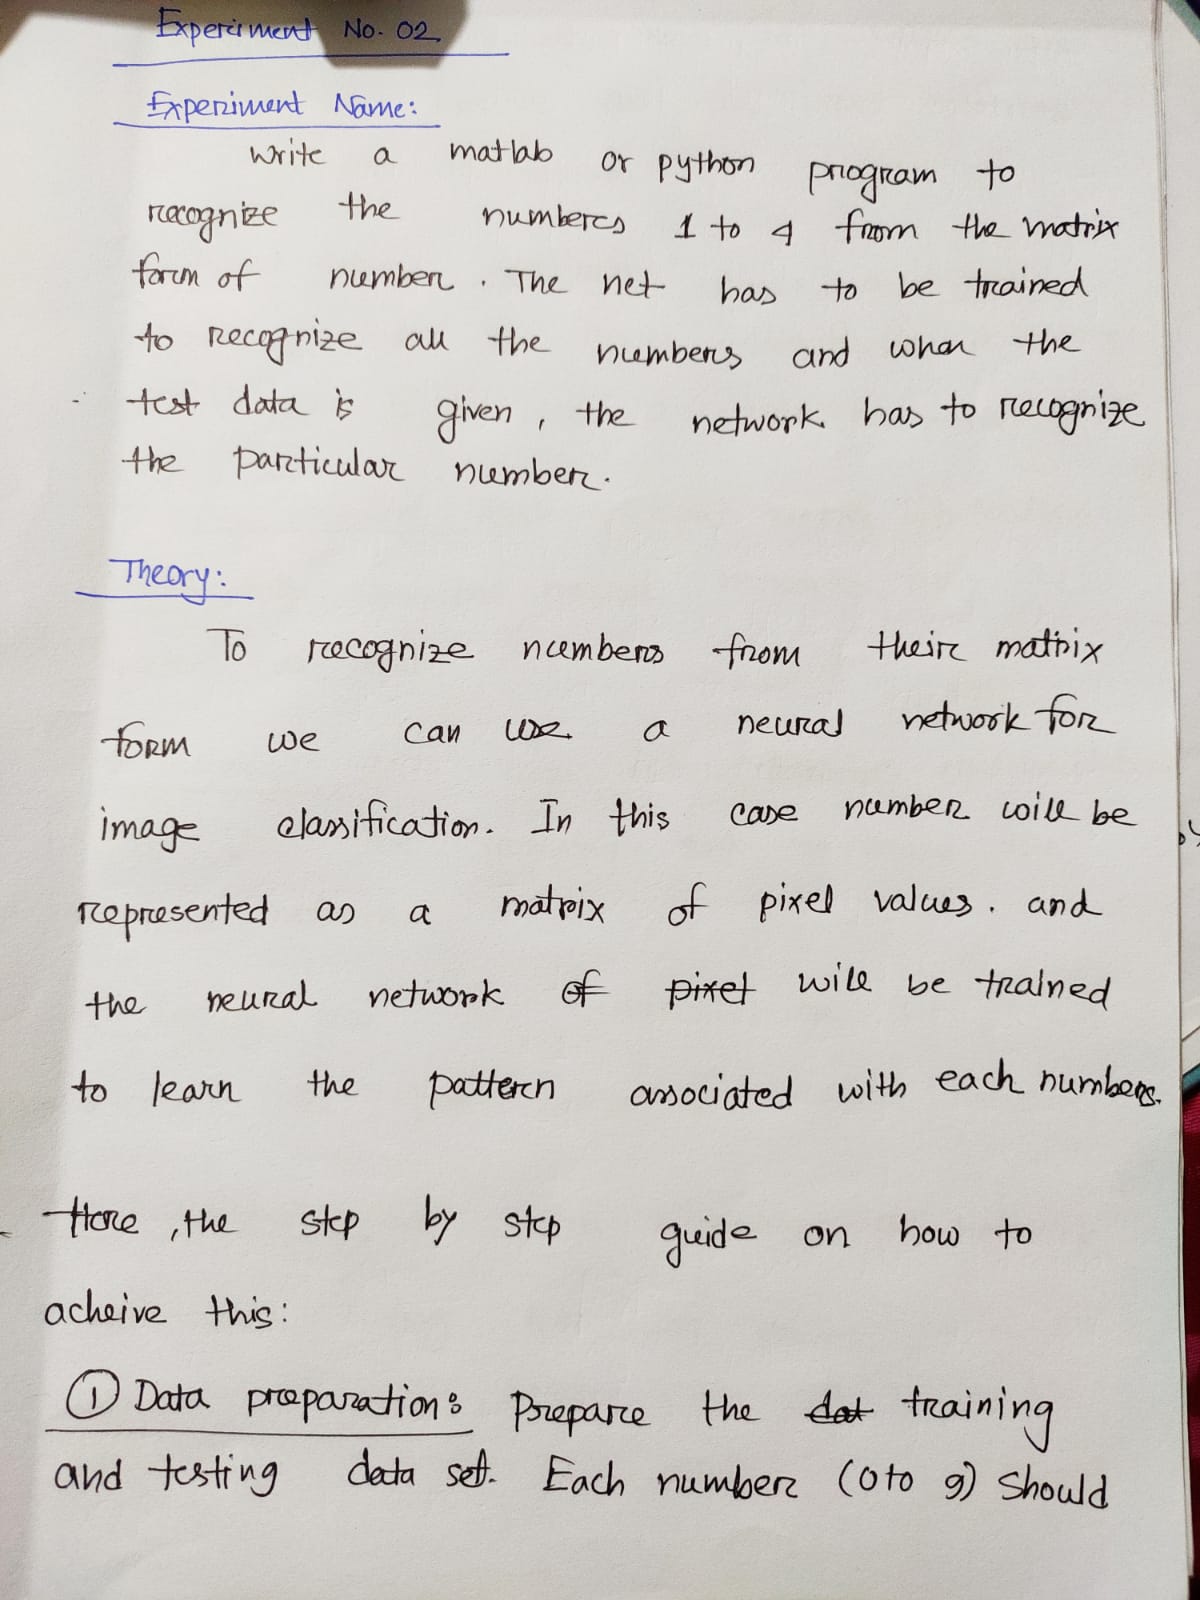 Experiment No. 02
Experiment Name:
Write a matlab or python program to
recognize the numbers 1 to 4 from the matrix
form of number. The net has to be trained
to recognize all the numbers and when the
test data is given, the network has to recognize
the particular number.
Theory:
To recognize numbers from their matrix
form we can use a neural network for
image classification. In this case number will be
represented as a matrix of pixel values. and
the neural network of pixel will be trained
to learn the pattern associated with each numbers.
Here, the step by step guide on how to
acheive this:
① Data preparation: Prepare the dat training
and testing data set. Each number (0 to 9) should